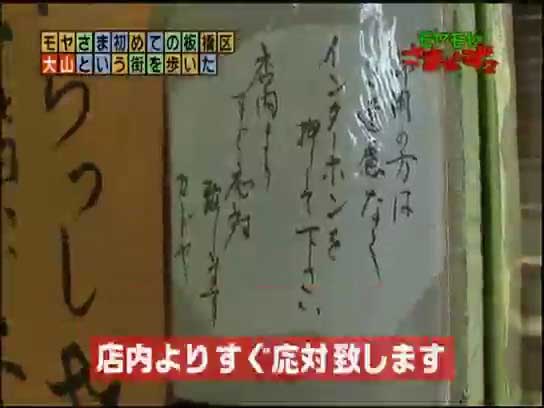 モヤさま初めての板橋区
大山という街を歩いた
モヤモヤ
さまぁ~ず2
用の方は
遠慮なく
インターホンを
押して下さい
店内より
すぐ応対
致します
カドヤ
らっしゃ
店内よりすぐ応対致します